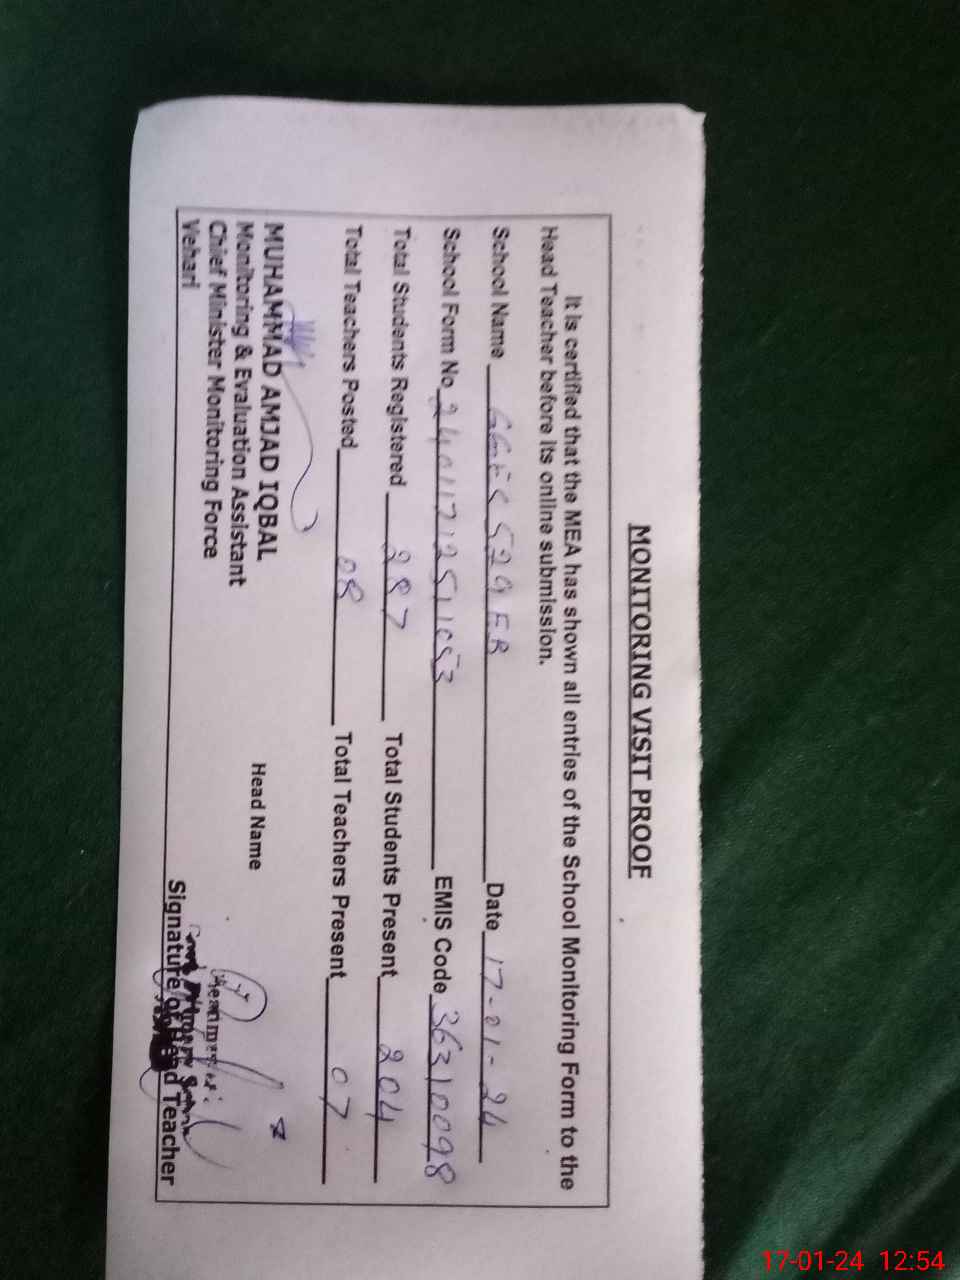 MONITORING VISIT PROOF
It is certified that the MEA has shown all entries of the School Monitoring Form to the
Head Teacher before its online submission.
School Name 529 EB Date 17-01-24
School Form No. EMIS Code 36310098
Total Students Registered 287 Total Students Present 204
Total Teachers Posted 08 Total Teachers Present 07
MUHAMMAD AMJAD IQBAL
Monitoring & Evaluation Assistant
Chief Minister Monitoring Force
Vehari
Head Name
Signature of Head Teacher
17-01-24 12:54